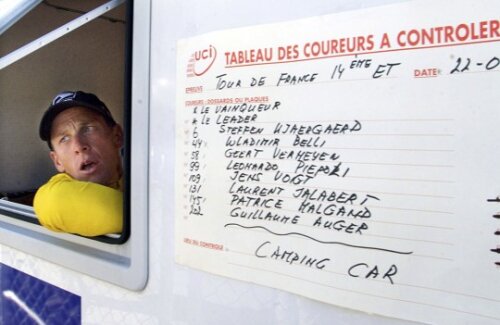 uci
TABLEAU DES COUREURS A CONTROLER
EPREUVE TOUR DE FRANCE 14ème ET DATE: 22-0
COUREURS: DOSSARDS OU PLAQUES
* LE VAINQUEUR
* LE LEADER
6 STEFFEN KJAERGAERD
44 WLADIMIR BELLI
58 GEERT VERHEYEN
99 LEONARDO PIEPOLI
109 JENS VOIGT
131 LAURENT JALABERT
145 PATRICE HALGAND
202 GUILLAUME AUGER
LIEU DU CONTROLE: CAMPING CAR